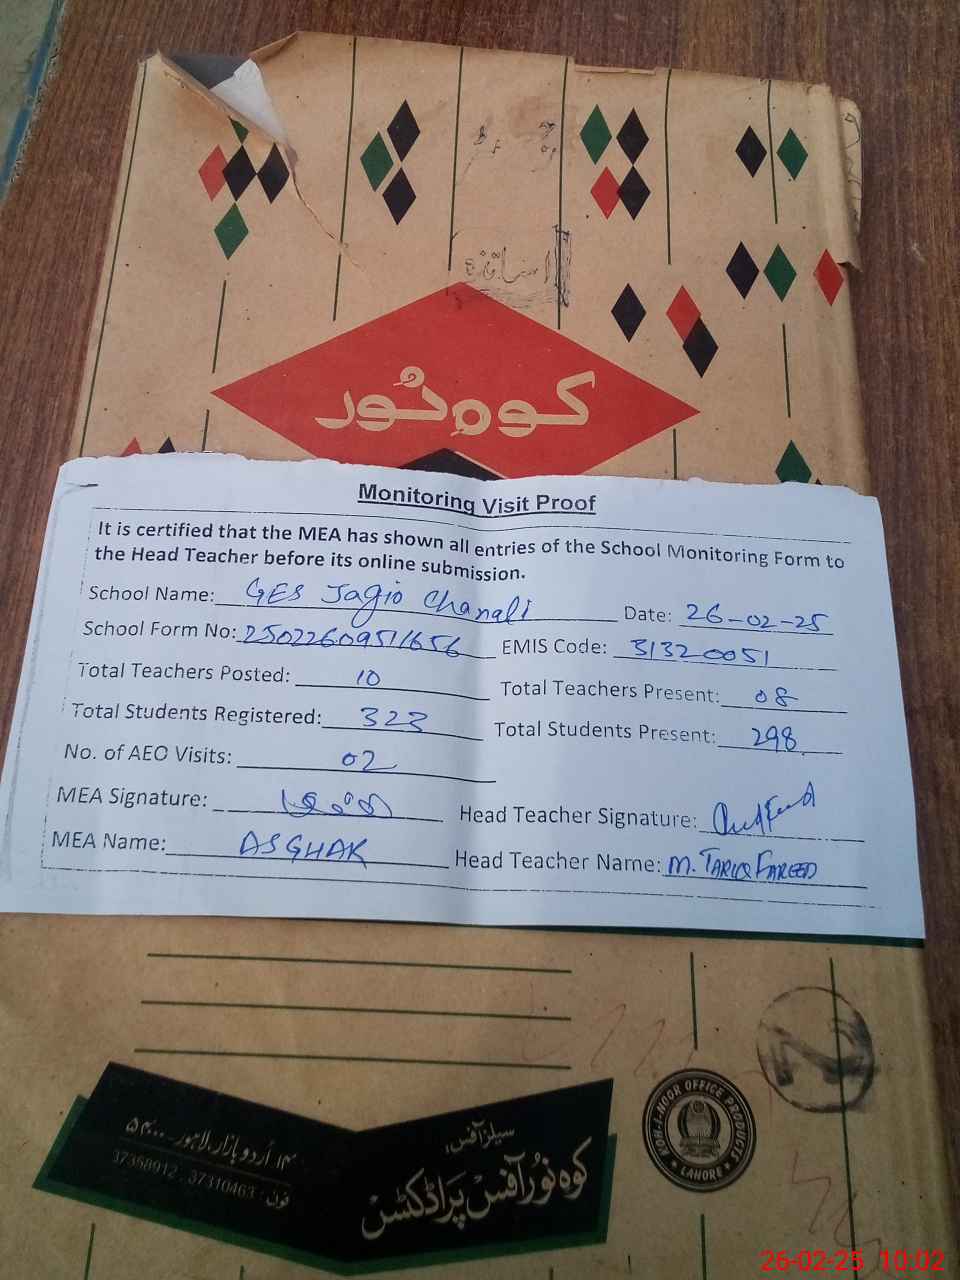 اساتذہ
کوہ نُور
Monitoring Visit Proof
It is certified that the MEA has shown all entries of the School Monitoring Form to
the Head Teacher before its online submission.
School Name: GES Jagio Chanali Date: 26-02-25
School Form No: 25022609511656 EMIS Code: 31320051
Total Teachers Posted: 10 Total Teachers Present: 08
Total Students Registered: 323 Total Students Present: 298
No. of AEO Visits: 02
MEA Signature: Head Teacher Signature:
MEA Name: ASGHAR Head Teacher Name: M. TARIQ FAREED
سیلز آفس:
کوہ نُور آفس پراڈکٹس
۱۴ اُردو بازار، لاہور۔ ۵۴۰۰۰
فون: 37310463 , 37358912
KOH-I-NOOR OFFICE PRODUCTS
LAHORE
26-02-25 10:02